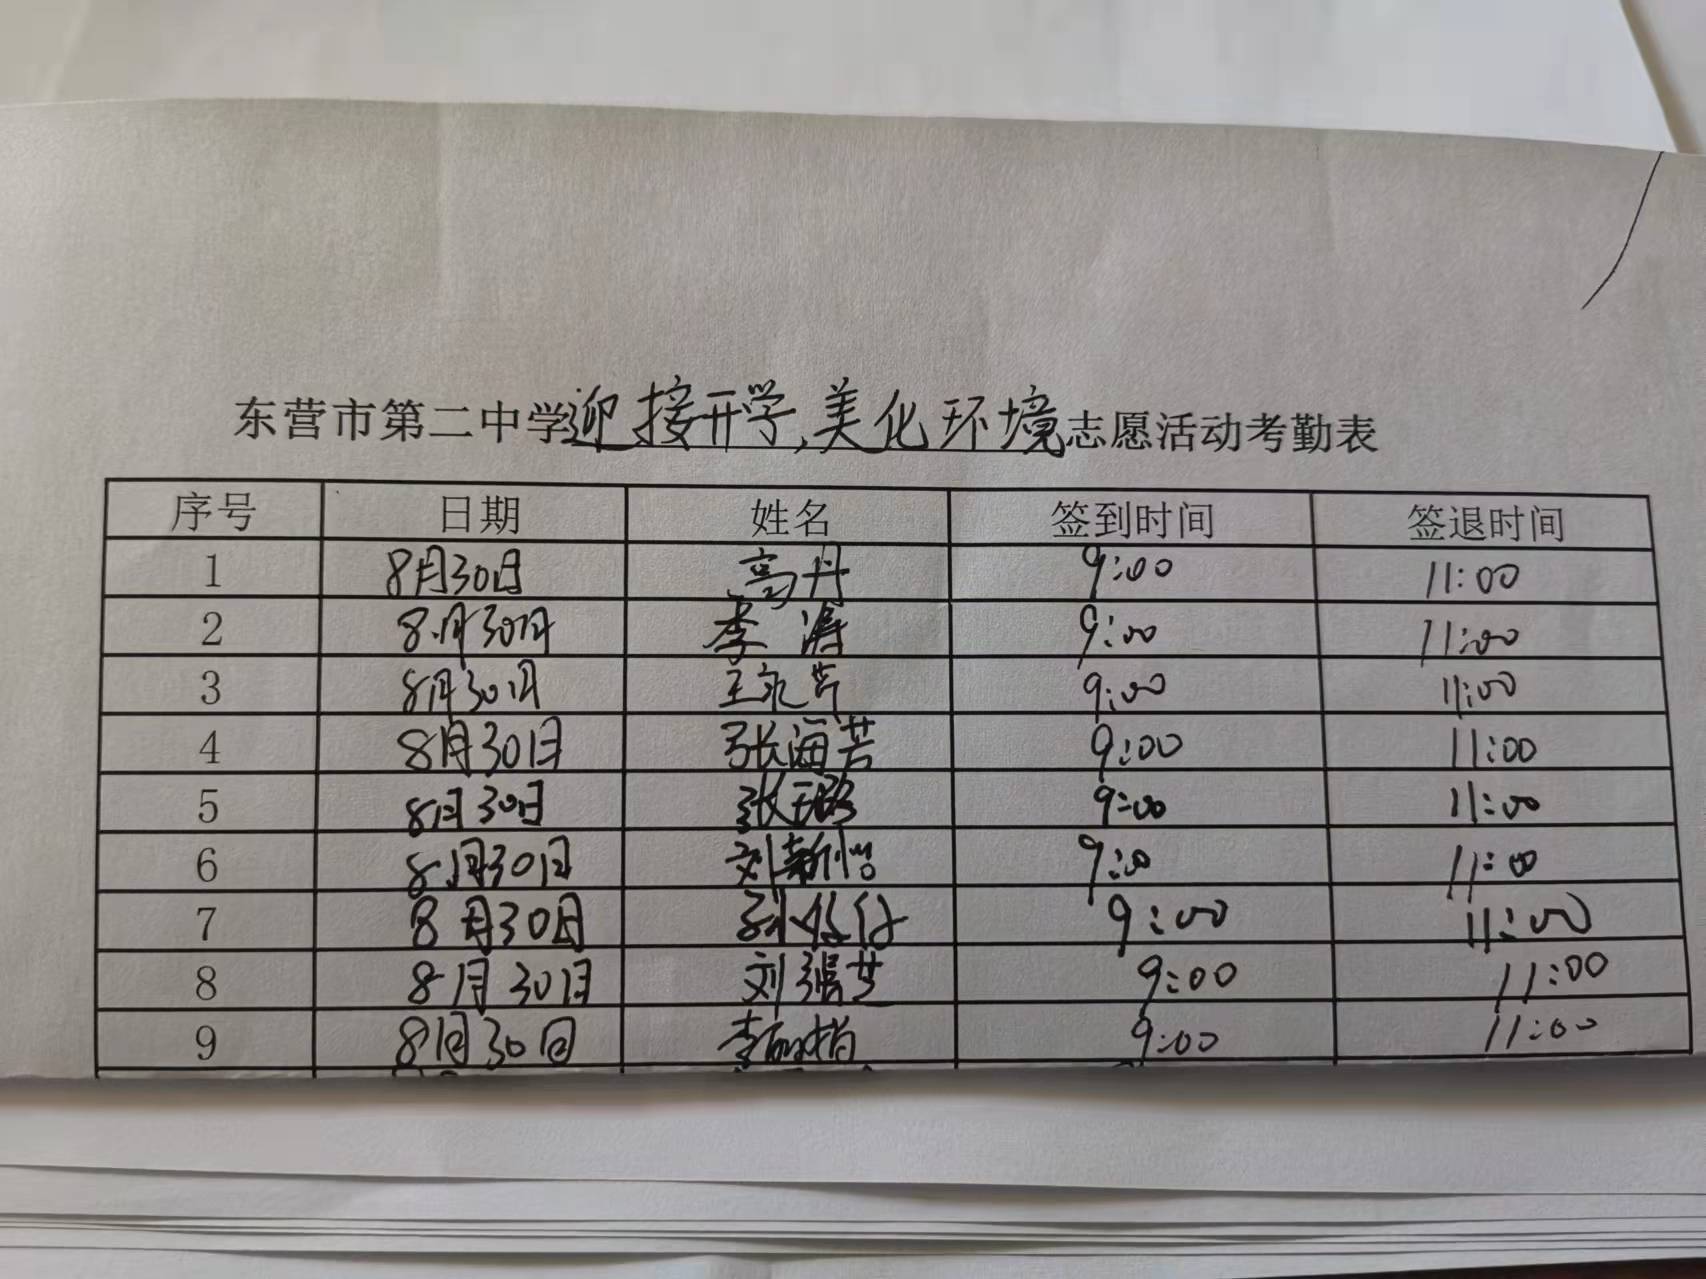 东营市第二中学迎接开学,美化环境志愿活动考勤表
序号 日期 姓名 签到时间 签退时间
1 8月30日 高丹 9:00 11:00
2 8月30日 李涛 9:00 11:00
3 8月30日 王永芹 9:00 11:00
4 8月30日 张海芳 9:00 11:00
5 8月30日 张璐 9:00 11:00
6 8月30日 刘新 9:00 11:00
7 8月30日 9:00 11:00
8 8月30日 刘强 9:00 11:00
9 8月30日 李 9:00 11:00